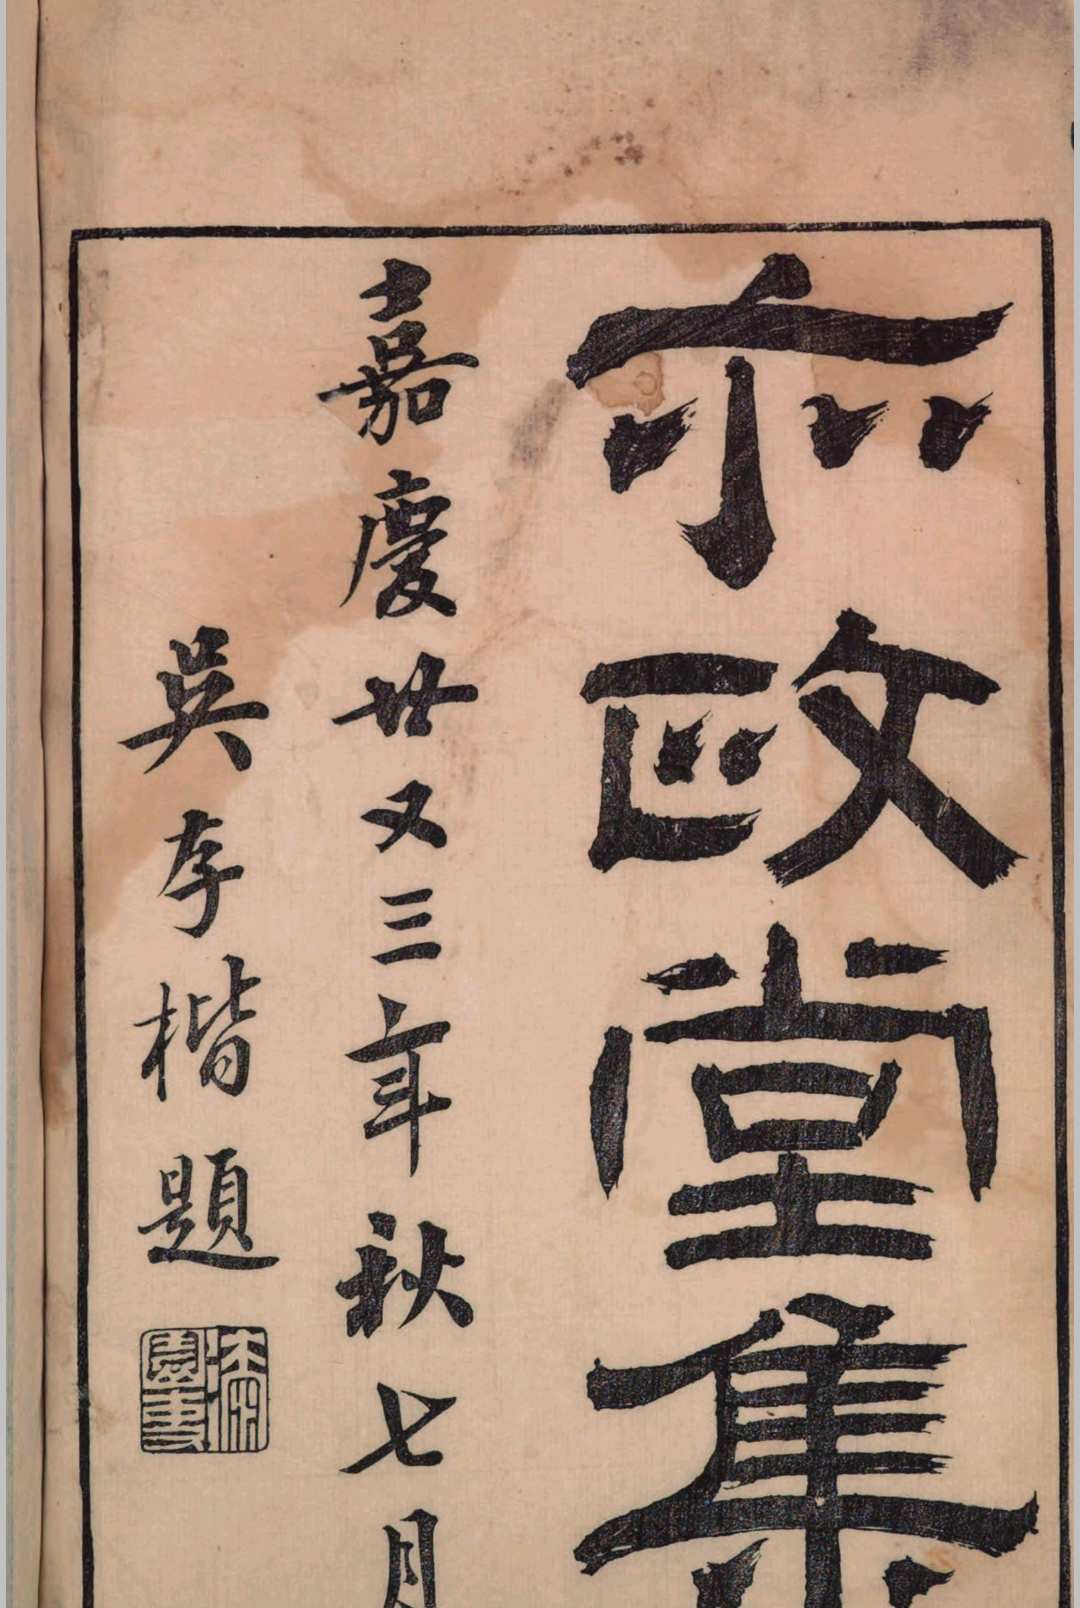 亦政堂集
嘉慶廿又三年秋七月
吳存楷題